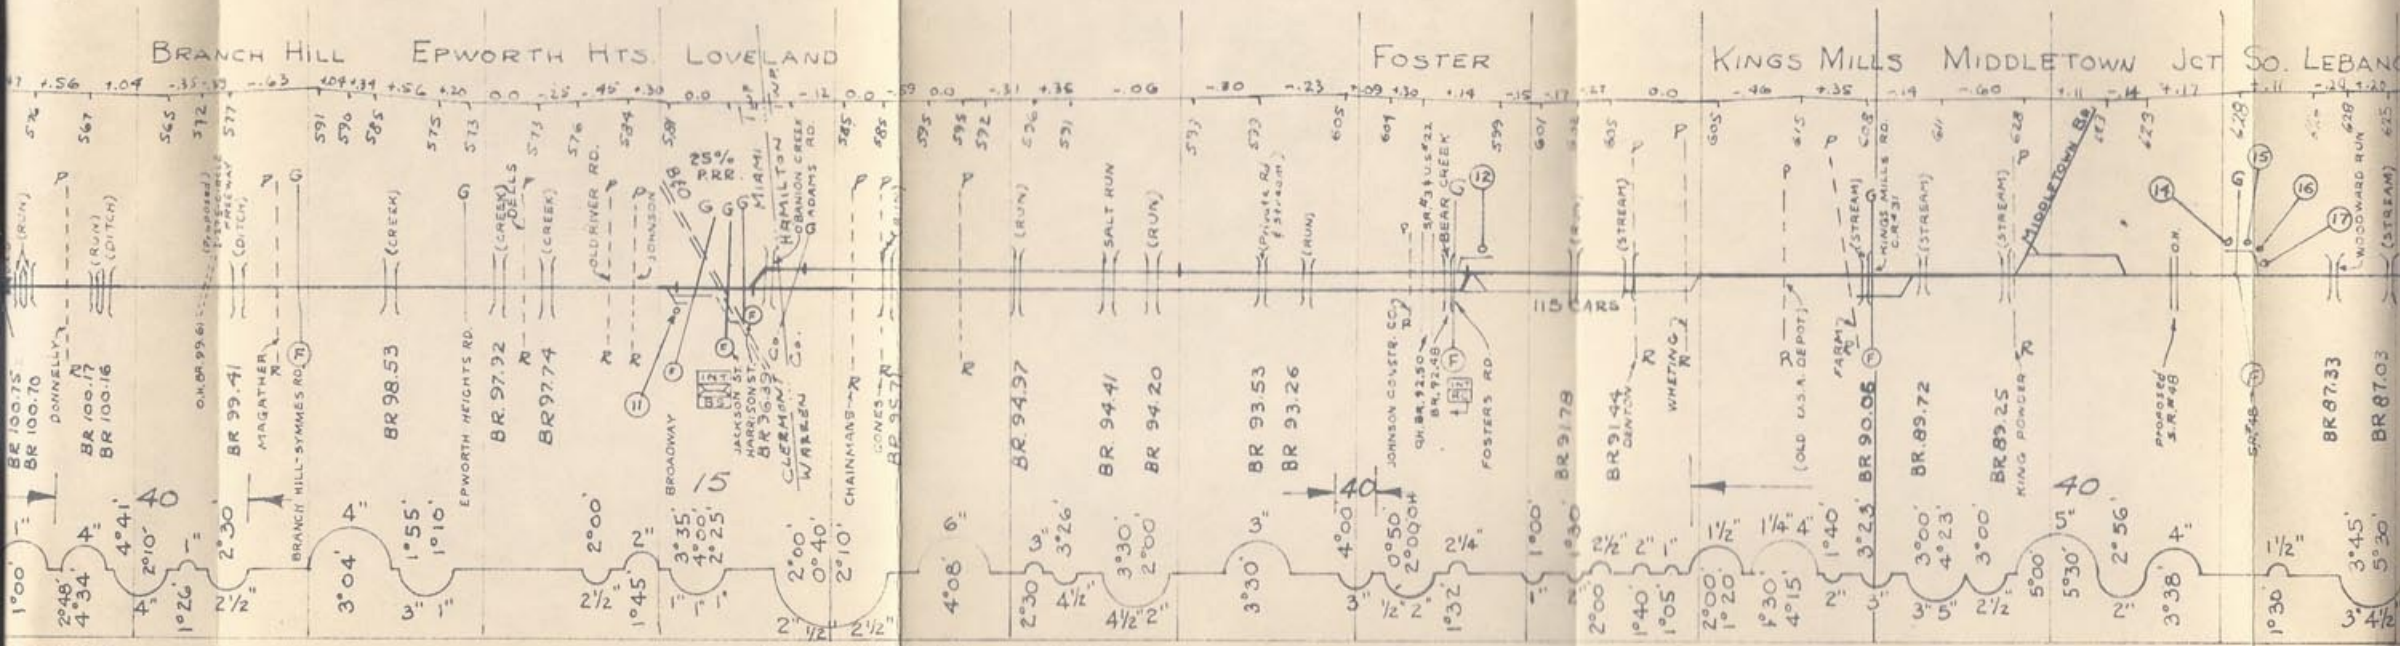 BRANCH HILL EPWORTH HTS. LOVELAND FOSTER KINGS MILLS MIDDLETOWN JCT SO. LEBANO
+.56 +.04 -.35 -.63 +.04 +.34 +.56 +.20 0.0 -.25 -.45 +.30 0.0 -.12 0.0 0.0 -.31 +.36 -.06 -.30 -.23 +.09 +.30 +.14 -.15 -.17 0.0 -.46 +.35 -.14 -.60 +.11 -.14 +.17 +.11
576 567 565 572 577 591 590 585 575 573 573 576 584 581 585 585 595 595 592 596 591 593 593 605 604 599 601 605 605 615 608 611 628 623 628 628 625
25%
P.R.R.
MIAMI
HAMILTON
O'BANION CREEK
ADAMS RD.
(RUN)
(RUN)
(DITCH)
(Proposed)
FREEWAY
(DITCH)
(CREEK)
(CREEK)
DELLS
(CREEK)
OLD RIVER RD.
JOHNSON
(RUN)
SALT RUN
(RUN)
(Private Rd
& stream)
(RUN)
S.R.#3 & U.S.#22
BEAR CREEK
12
(STREAM)
(STREAM)
KINGS MILLS RD.
C.R.#31
(STREAM)
(STREAM)
MIDDLETOWN BR
O.H.
14
15
16
17
WOODWARD RUN
(STREAM)
115 CARS
BR 100.75
BR 100.70
DONNELLY
BR 100.17
BR 100.16
O.H.BR.99.61
BR 99.41
MAGATHER
BRANCH HILL-SYMMES RD.
BR 98.53
EPWORTH HEIGHTS RD.
BR 97.92
BR 97.74
11
BROADWAY
JACKSON ST.
HARRISON ST.
BR 96.39
CLERMONT Co.
WARREN Co.
CHAINMANS
JONES
BR 95.7
BR 94.97
BR. 94.41
BR 94.20
BR 93.53
BR 93.26
JOHNSON CONSTR. CO.
OH.BR.92.50
BR. 92.48
FOSTERS RD.
BR 91.78
BR 91.44
DENTON
WHETING
(OLD U.S.A. DEPOT)
FARM
BR 90.06
BR.89.72
BR 89.25
KING POWDER
Proposed
S.R.#48
S.R.#48
BR 87.33
BR 87.03
40 15 40 40
1°00'
2°48'
4°34'
4"
4°41'
2°10'
4"
1°26'
1"
2°30'
2½"
3°04'
4"
1°55'
1°10'
3"
1"
2°00'
2½"
1°45'
2"
3°35'
4°00'
2°25'
1"
1"
1"
2°00'
0°40'
2°10'
2"
½"
2½"
4°08'
6"
2°30'
3"
3°26'
4½"
3°30'
2°00'
4½"
2"
3°30'
3"
4°00'
3"
0°50'
2°00'
½"
2"
2¼"
1°32'
1°00'
1"
1°30'
2°00'
2½"
1°40'
2"
1°05'
1"
2°00'
1°20'
1½"
1°30'
4°15'
1¼"
4"
1°40'
2"
3°23'
3"
3°00'
4°23'
3"
5"
3°00'
2½"
5°00'
5°30'
5"
2°56'
2"
3°38'
4"
1°30'
1½"
3°45'
5°30'
3"
4½"